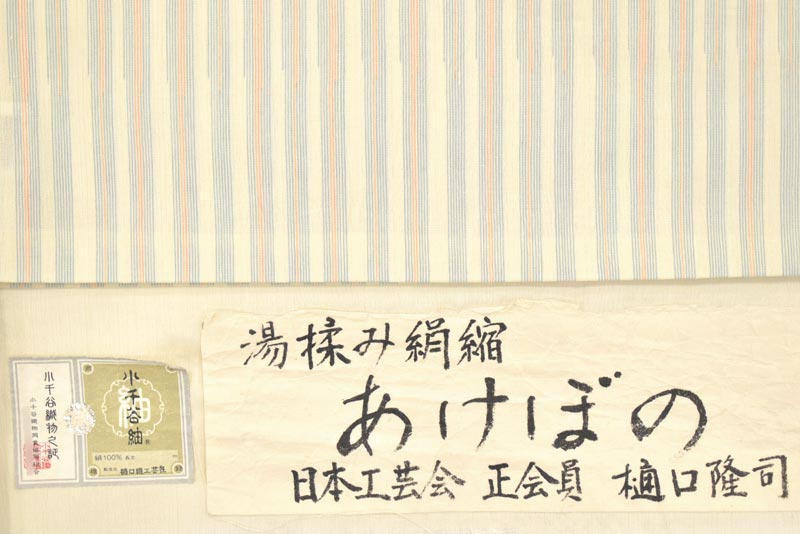 湯揉み絹縮
あけぼの
日本工芸会 正会員 樋口隆司
小千谷紬
紬
絹100%
樋口織工芸㐧
小千谷織物之証
小千谷織物同業協同組合